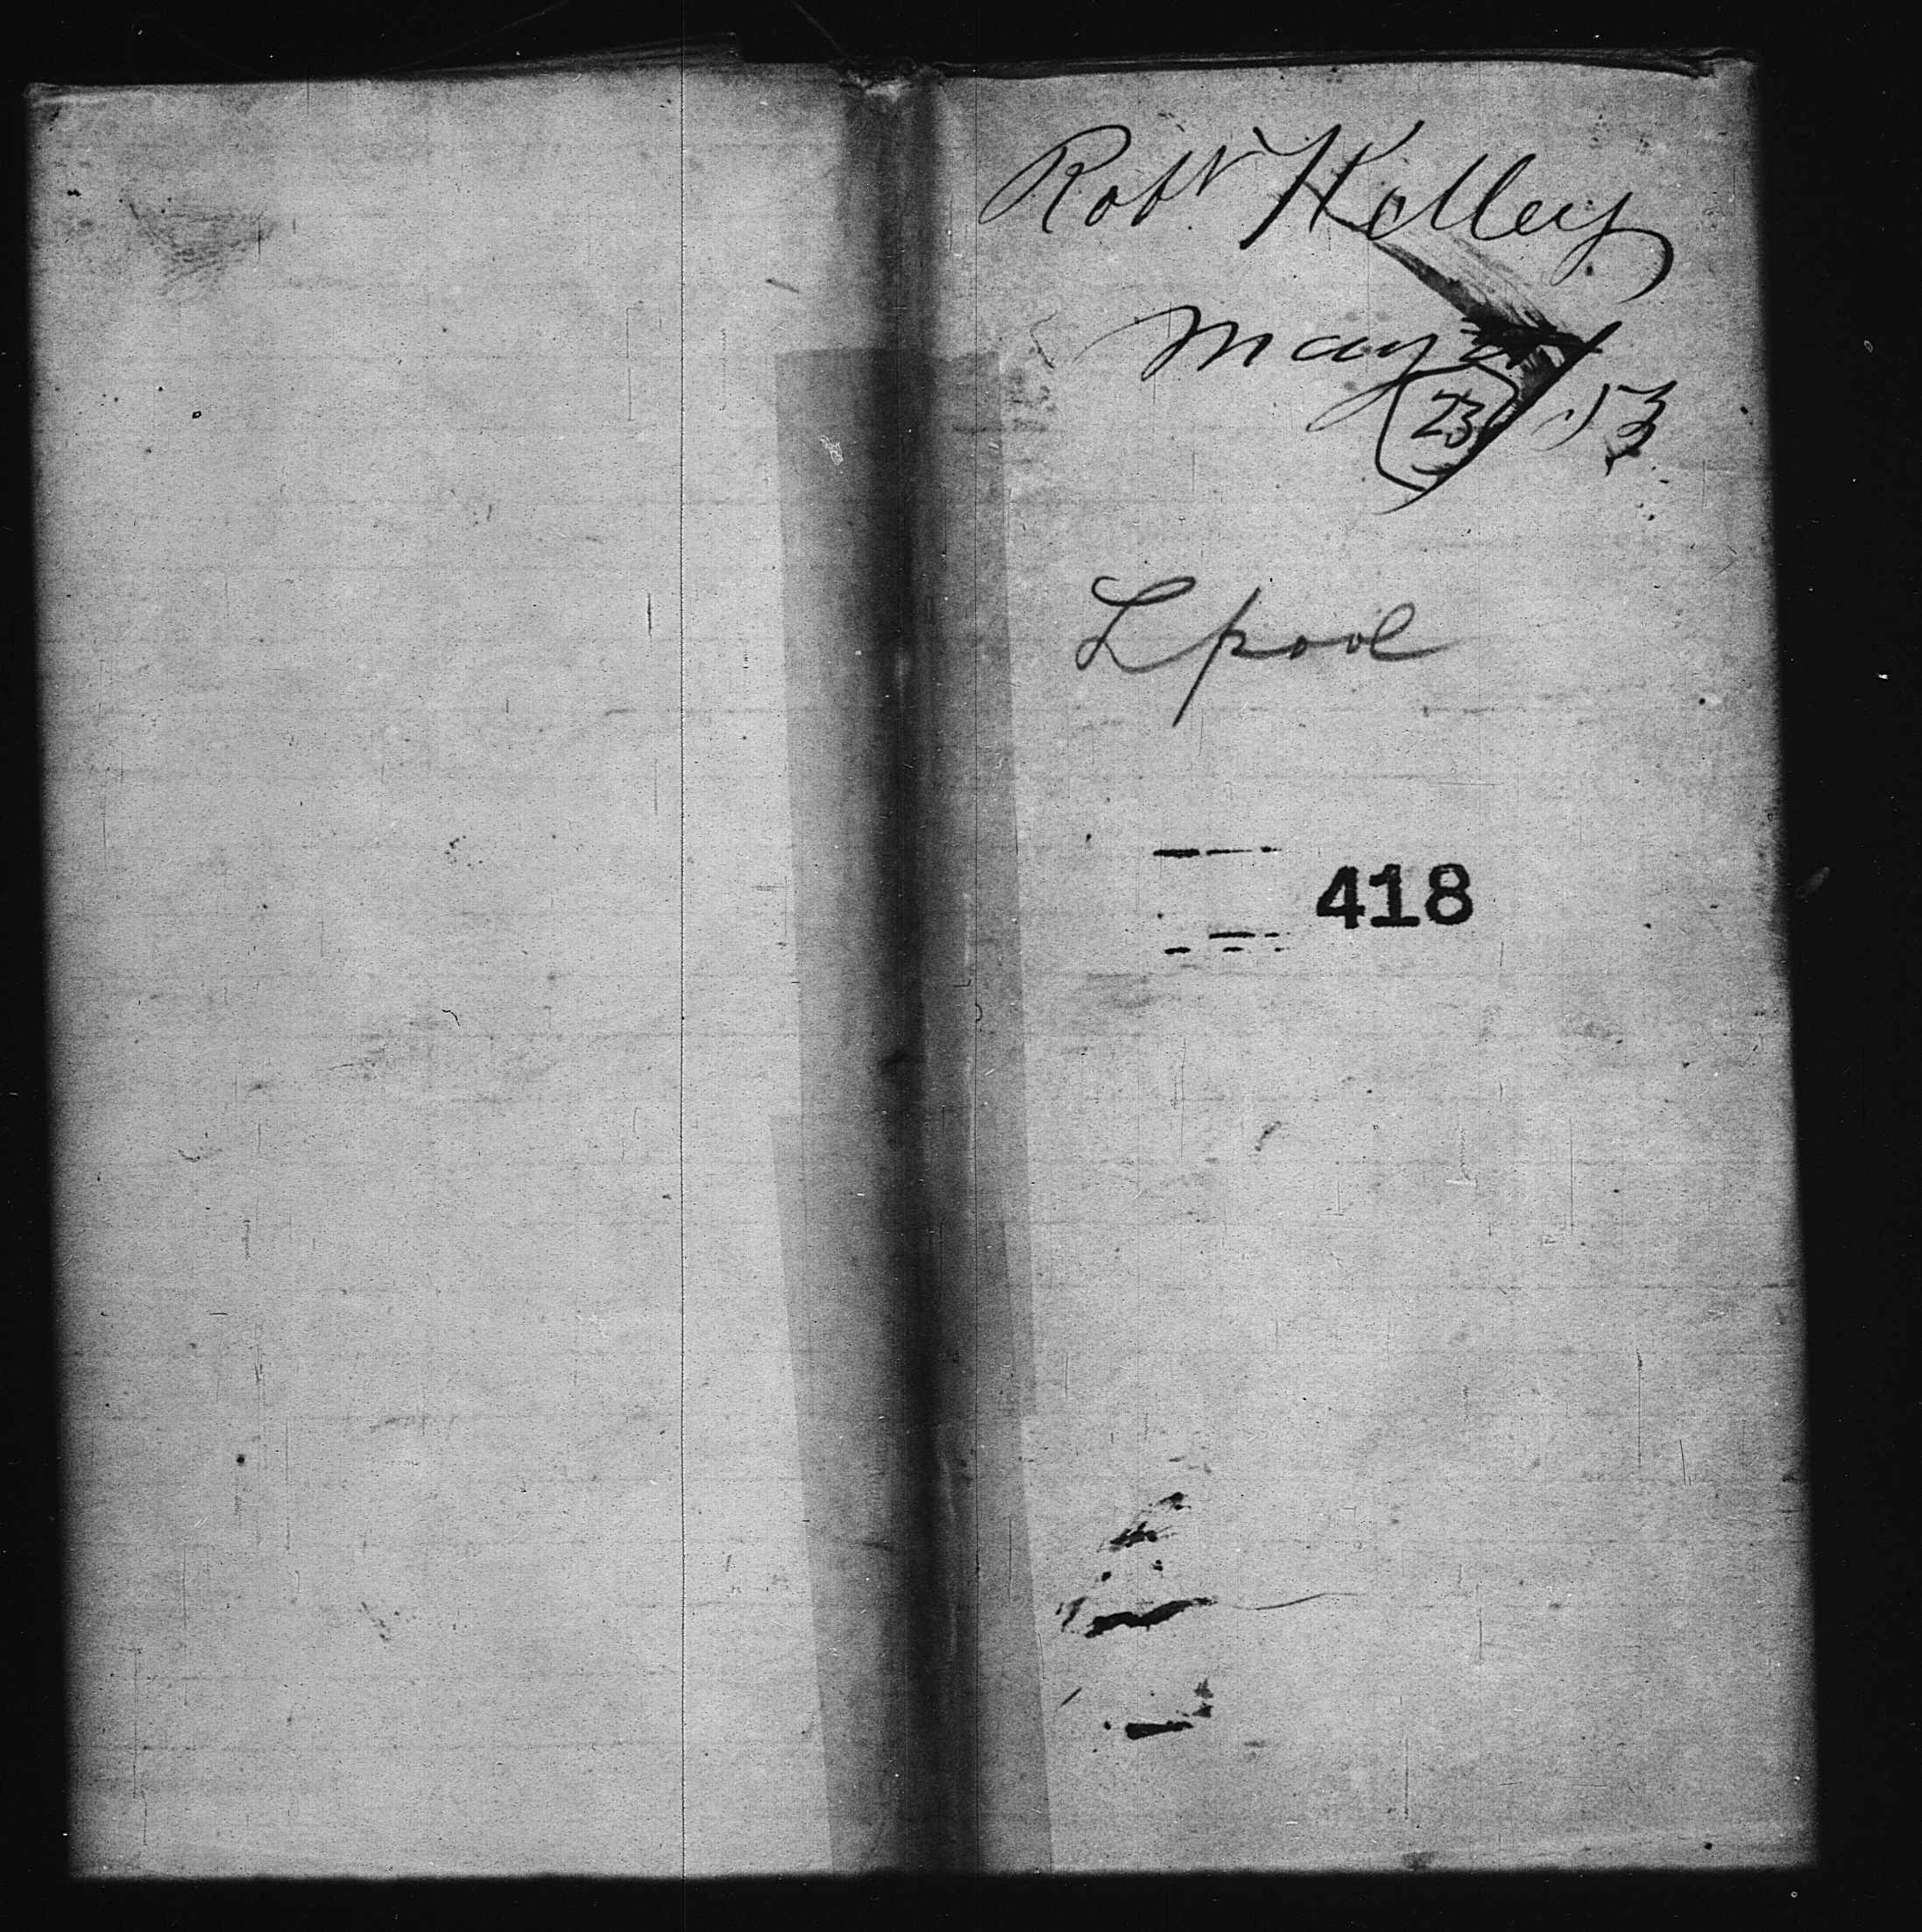 Robt Kelley
May
23 53
Lpool
418